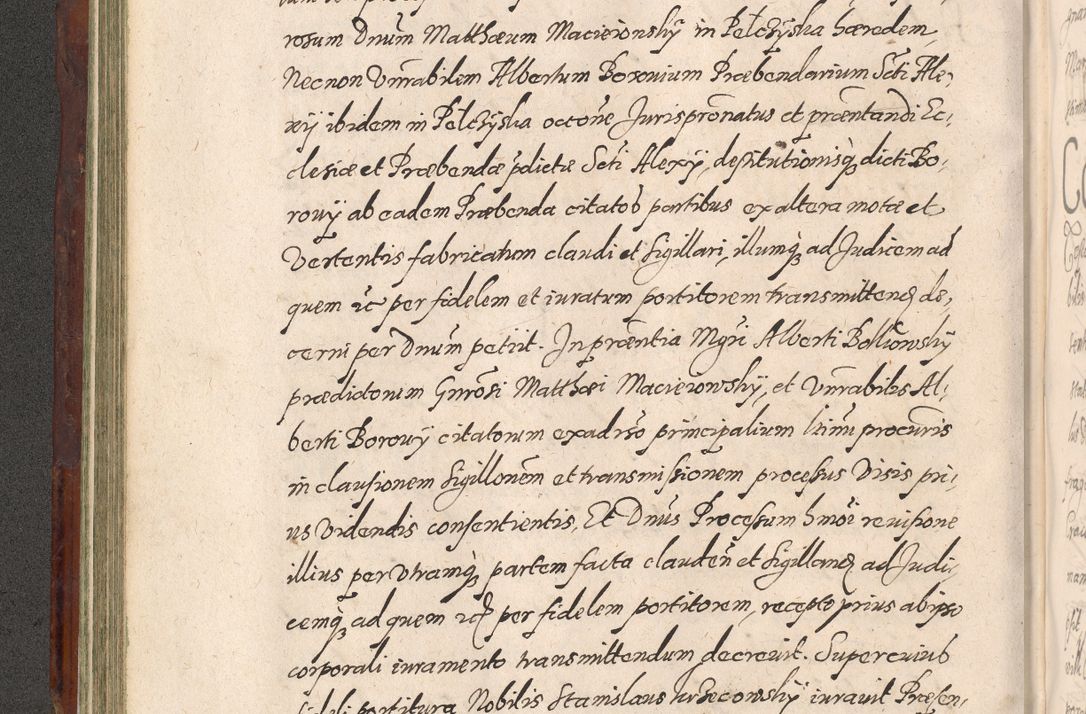 rosum Dnum Matthæum Macieiowsky in Pełczyska hæredem,
Necnon Vnrabilem Albertum Boxouium Præbendarium Scti Ale,
xij ibidem in Pełczyska occõne Jurispronatus et præntandi Ec,
clesiæ et Præbendæ pdictæ Scti Alexij, destitutionisq dicti Bo,
rouÿ ab eadem Præbenda citatob partibus ex altera motæ et
Vertentis fabricatum claudi et Sigillari, illumq ad Judicem ad
quem per fidelem et iuratum portitorem transmittend de,
cerni per Dnum petiit. In præntia Mgri Alberti Bolkowsky
prædictorum Gnrosi Matthæi Macierowsky, et Vnrabilis Al,
berti Borouÿ citatorum ex adrso principalium procuris
in clausionem Sigillonem et transmissionem processus Visis pri,
us Videndis consentientis, Et Dnus Processum hmoi reuisione
illius per Vtramq partem facta clauden et Sigilland ad Judi,
cemq ad quem per fidelem portitorem, recepto prius ab ipso
corporali iuramento transmittendum decreuit. Super cuius
fideli portitura Nobilis Stanislaus iurauit Præsen,